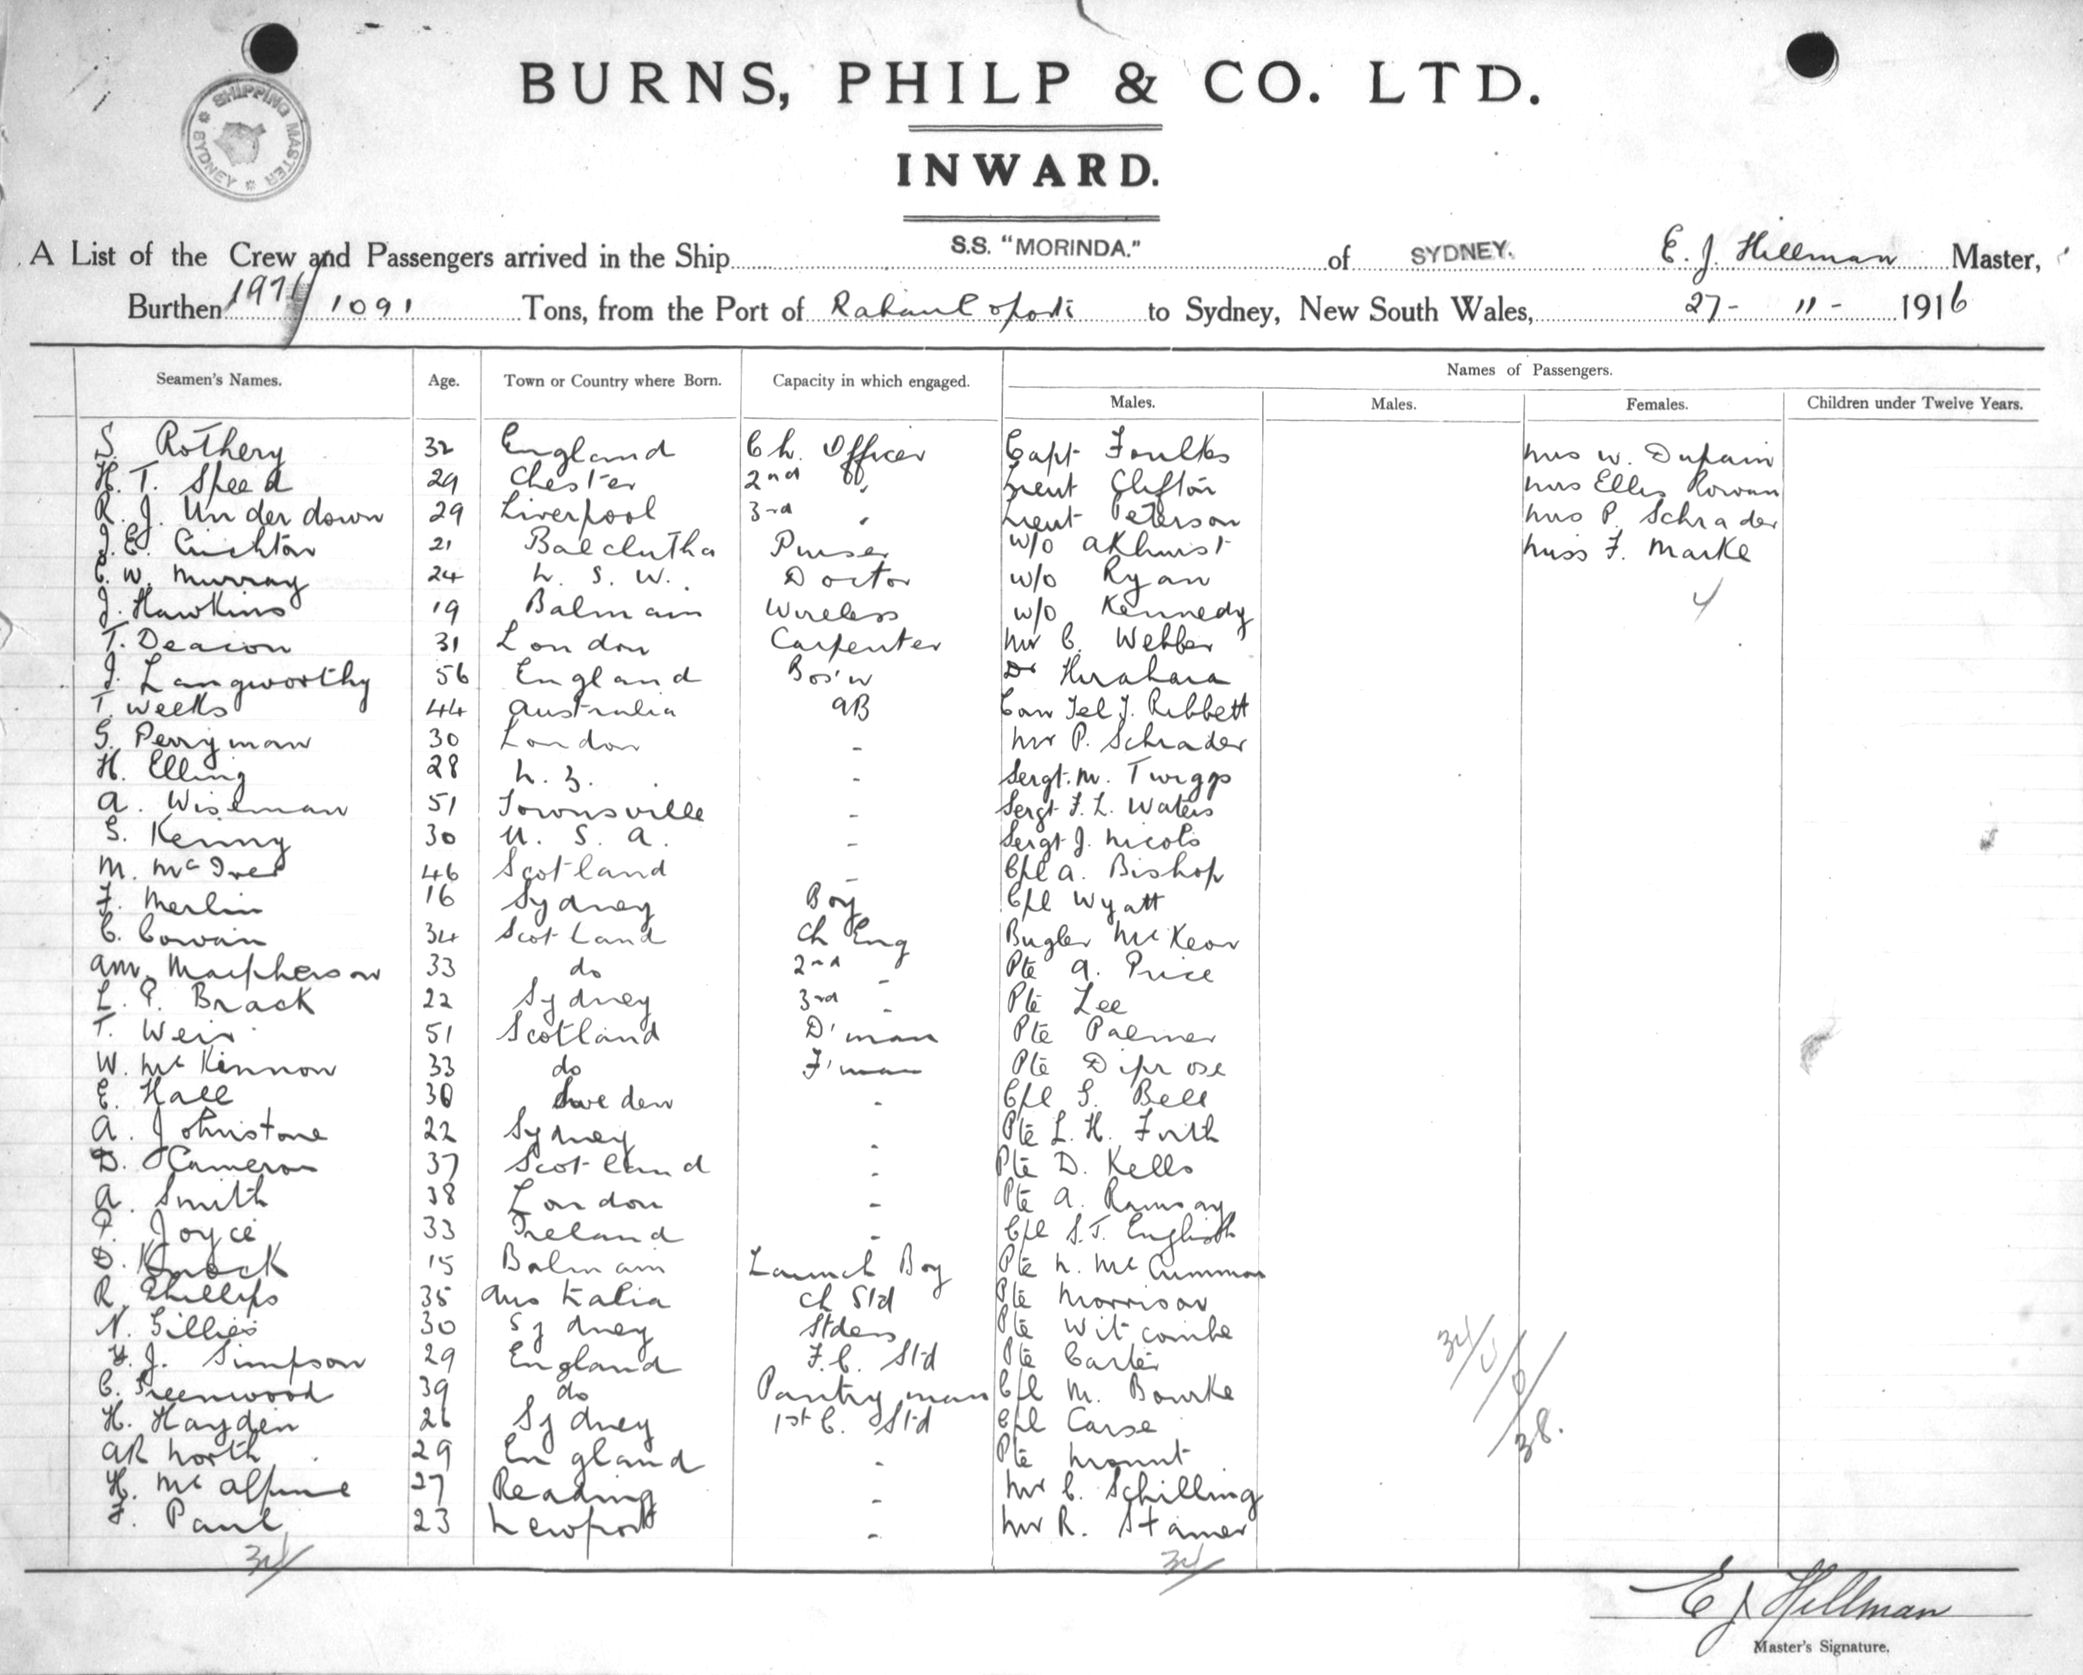 SHIPPING MASTER
SYDNEY
BURNS, PHILP & CO. LTD.
INWARD.
A List of the Crew and Passengers arrived in the Ship S.S. "MORINDA." of SYDNEY. E. J. Hillman Master,
Burthen 1971/1091 Tons, from the Port of Rabaul & ports to Sydney, New South Wales, 27- 11- 1916
Seamen's Names. Age. Town or Country where Born. Capacity in which engaged. Names of Passengers.
Males. Males. Females. Children under Twelve Years.
S. Rothery 32 England Ch. Officer Capt Foulkes Mrs W. Dupain
H. T. Speed 29 Chester 2nd " Lieut Clifton Mrs Ellis Rowan
R. J. Underdown 29 Liverpool 3rd " Lieut Peterson Mrs P. Schrader
J. E. Crichton 21 Balclutha Purser W/O Akhurst Miss F. Marke
C. W. Murray 24 N. S. W. Doctor W/O Ryan
J. Hawkins 19 Balmain Wireless W/O Kennedy 4
T. Deacon 31 London Carpenter Mr C. Webber
J. Langworthy 56 England Bos'n Dr Hirahara
T. Weeks 44 Australia AB Tel J. Ribbett
G. Perryman 30 London - Mr P. Schrader
H. Elling 28 N. Z. - Sergt. M. Twiggs
A. Wiseman 51 Townsville - Sergt F. L. Waters
S. Kenny 30 U. S. A. - Sergt J. Nicols
M. McIver 46 Scotland - Cpl A. Bishop
F. Merlin 16 Sydney Boy Cpl Wyatt
C. Cowan 34 Scotland Ch Eng Bugler McKeon
AM. Macpherson 33 do 2nd " Pte A. Price
L. P. Brack 22 Sydney 3rd " Pte Lee
T. Weir 51 Scotland D'man Pte Palmer
W. McKinnon 33 do F'man Pte Diprose
E. Hall 30 Sweden - Cpl G. Bell
A. Johnstone 22 Sydney - Pte L. H. Firth
D. Cameron 37 Scotland - Pte D. Kells
A. Smith 38 London - Pte A. Ramsay
P. Joyce 33 Ireland - Cpl S. T. English
D. Knock 15 Balmain Launch Boy Pte N. McCrimmon
R. Phillips 35 Australia Ch Std Pte Morrison
N. Gillies 30 Sydney Stdess Pte Witcombe
J. Simpson 29 England F.C. Std Pte Carter
C. Greenwood 39 do Pantryman Cpl M. Bourke
H. Hayden 26 Sydney 1st C. Std Cpl Carse
AR North 29 England - Pte Mount
H. McAlpine 27 Reading - Mr C. Schilling
F. Paul 23 Newport - Mr R. Stamer
34 34
38.
E J Hillman
Master's Signature.